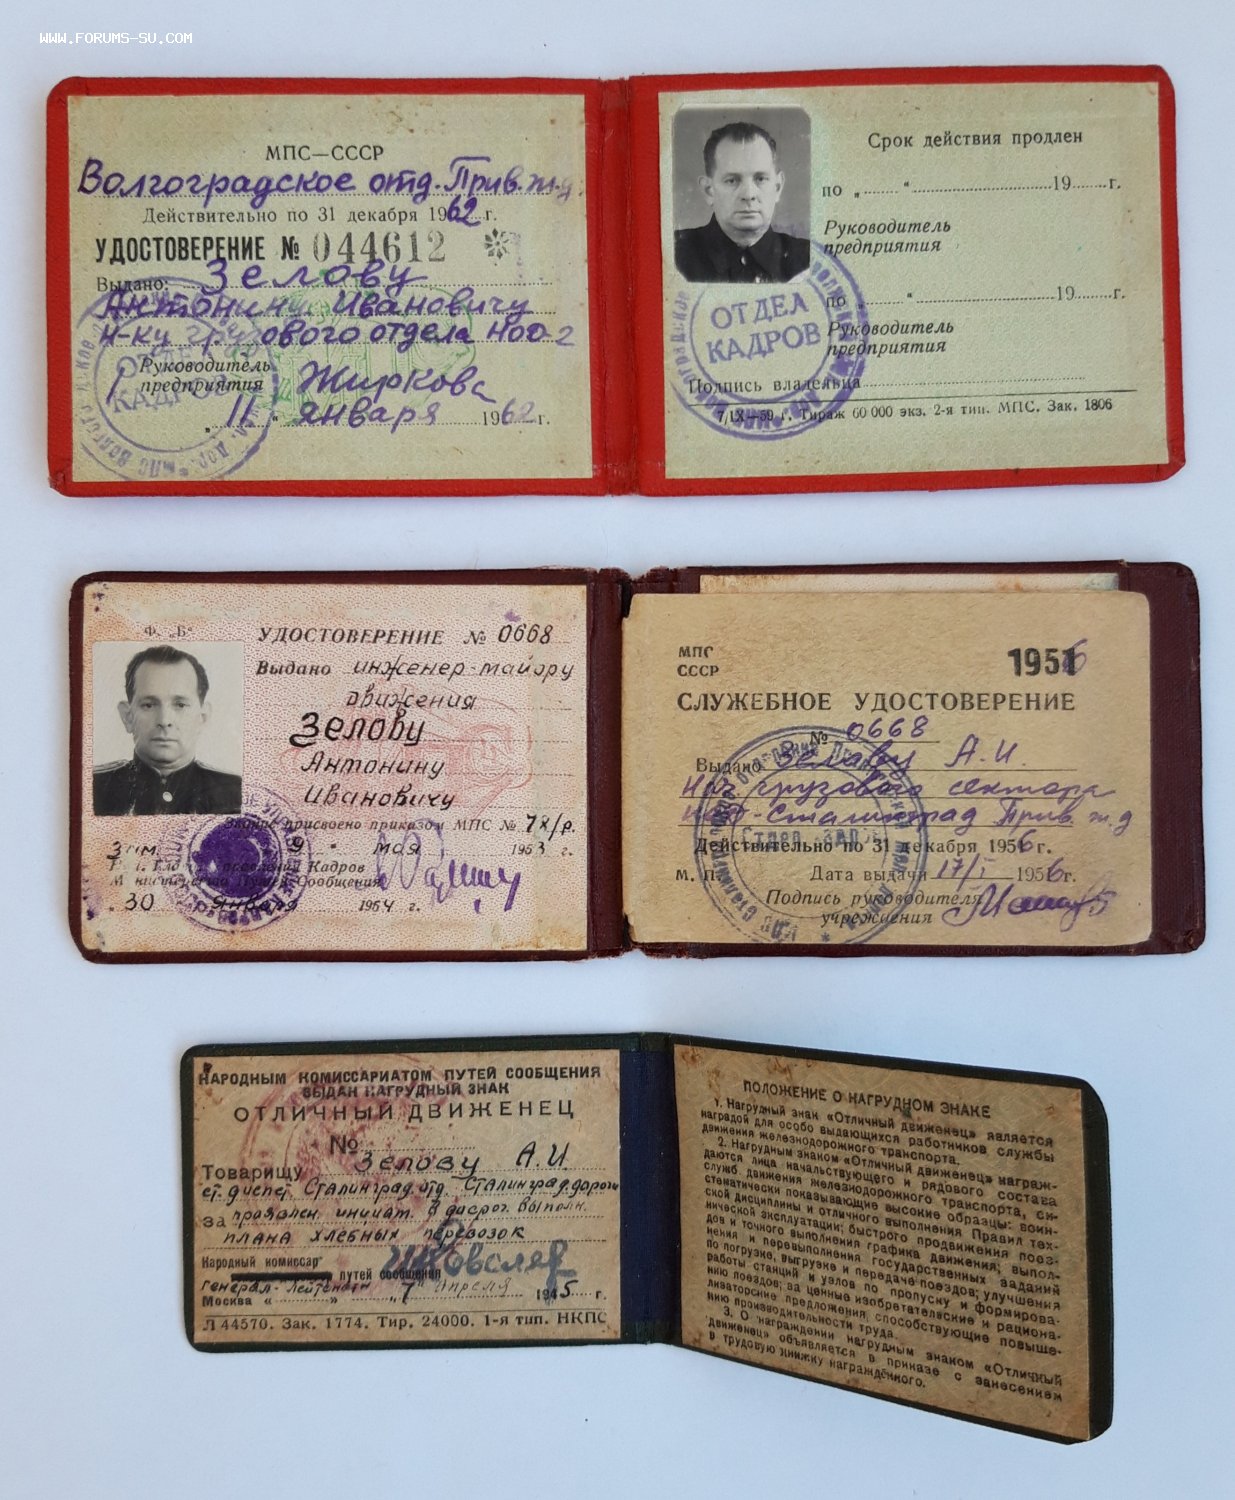 WWW.FORUMS-SU.COM
МПС—СССР
Волгоградское отд. Прив. ж.д.
Действительно по 31 декабря 1962 г.
УДОСТОВЕРЕНИЕ № 044612
Выдано: Зелову
Антонину Ивановичу
н-ку грузового отдела НОД-2
Руководитель
предприятия Жиркова
„ 11 " января 1962 г.
ОТДЕЛ
КАДРОВ
Срок действия продлен
по „........“........19......г.
Руководитель
предприятия
по „........“........19......г.
Руководитель
предприятия
Подпись владельца
7/IX—59 г. Тираж 60 000 экз. 2-я тип. МПС. Зак. 1806
ОТДЕЛ
КАДРОВ
Ф. „Б“
УДОСТОВЕРЕНИЕ № 0668
Выдано инженер-майору
движения
Зелову
Антонину
Ивановичу
Звание присвоено приказом МПС № 78/р.
9 мая 1953 г.
Кадров
Министерства Путей Сообщения
30 января 1954 г.
МПС
СССР
1956
СЛУЖЕБНОЕ УДОСТОВЕРЕНИЕ
№ 0668
Выдано Зелову А.И.
нач. грузового сектора
Сталинград Прив. ж.д
Действительно по 31 декабря 1956 г.
м. п. Дата выдачи 17/I 1956 г.
Подпись руководителя
учреждения
НАРОДНЫМ КОМИССАРИАТОМ ПУТЕЙ СООБЩЕНИЯ
ВЫДАН НАГРУДНЫЙ ЗНАК
ОТЛИЧНЫЙ ДВИЖЕНЕЦ
№
Товарищу Зелову А.И
ст. диспет. Сталинград. отд. Сталинград. дороги
за проявлен. инициат. в досроч. выполн.
плана хлебных перевозок
Народный комиссар
путей сообщения
генерал-лейтенант И Ковалев
Москва « 7 » апреля 1945 г.
Л 44570. Зак. 1774. Тир. 24000. 1-я тип. НКПС
ПОЛОЖЕНИЕ О НАГРУДНОМ ЗНАКЕ
1. Нагрудный знак «Отличный движенец» является
наградой для особо выдающихся работников службы
движения железнодорожного транспорта.
2. Нагрудным знаком «Отличный движенец» награж-
даются лица начальствующего и рядового состава
служб движения железнодорожного транспорта, си-
стематически показывающие высокие образцы: воин-
ской дисциплины и отличного выполнения Правил тех-
нической эксплуатации; быстрого продвижения поез-
дов и точного выполнения графика движения; выпол-
нения и перевыполнения государственных заданий
по погрузке, выгрузке и передаче поездов; улучшения
работы станций и узлов по пропуску и формирова-
нию поездов; за ценные изобретательские и рациона-
лизаторские предложения, способствующие повыше-
нию производительности труда.
3. О награждении нагрудным знаком «Отличный
движенец» объявляется в приказе с занесением
в трудовую книжку награждённого.